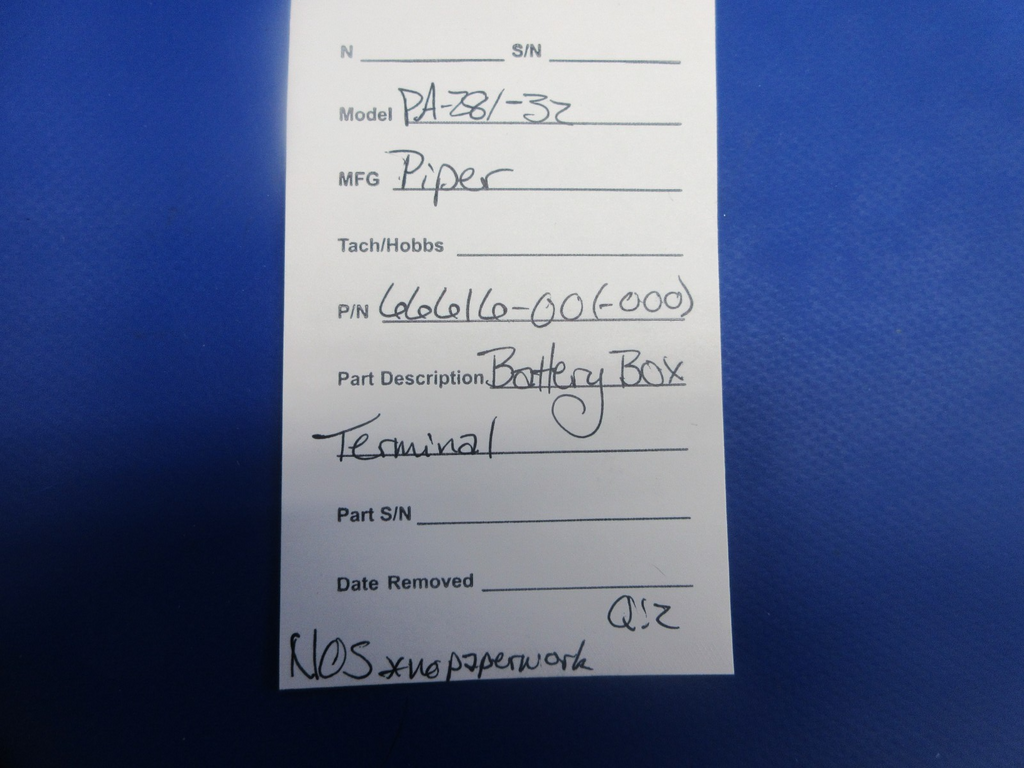 N S/N
Model PA-28/-32
MFG Piper
Tach/Hobbs
P/N 66616-00(-000)
Part Description Battery Box
Terminal
Part S/N
Date Removed
Q:2
NOS *no paperwork